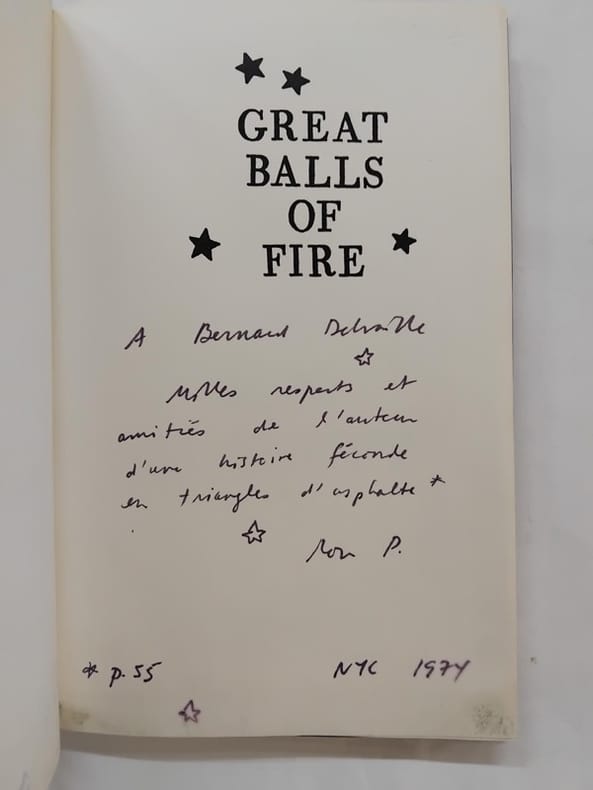 GREAT
BALLS
OF
FIRE
A Bernard Delvaille
Milles respects et
amitiés de l'auteur
d'une histoire féconde
en triangles d'asphalte *
Ron P.
* p. 55 NYC 1974